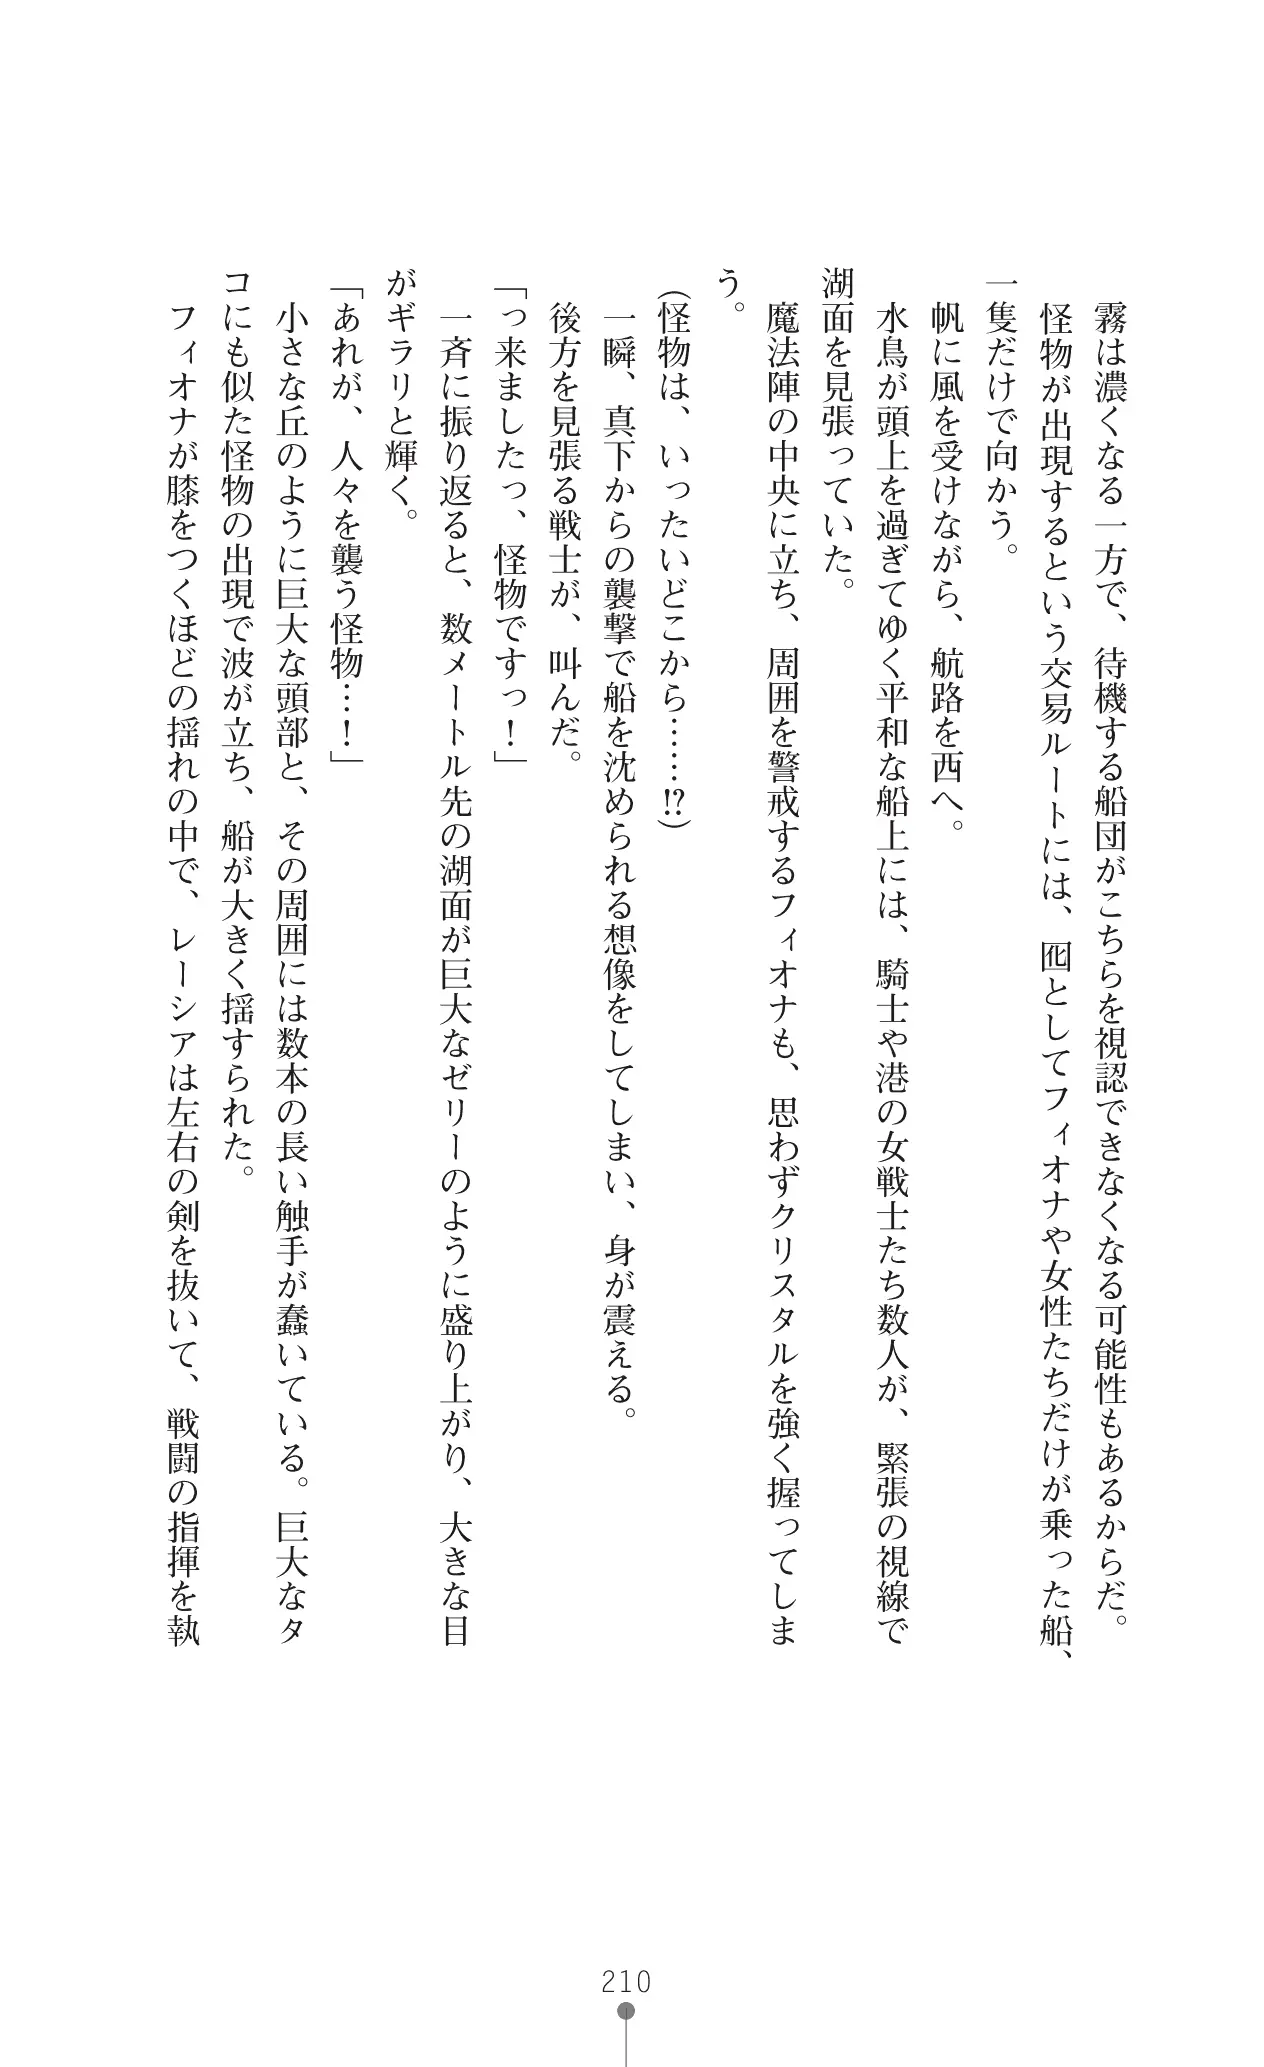 霧は濃くなる一方で、待機する船団がこちらを視認できなくなる可能性もあるからだ。
　怪物が出現するという交易ルートには、囮としてフィオナや女性たちだけが乗った船、
一隻だけで向かう。
　帆に風を受けながら、航路を西へ。
　水鳥が頭上を過ぎてゆく平和な船上には、騎士や港の女戦士たち数人が、緊張の視線で
湖面を見張っていた。
　魔法陣の中央に立ち、周囲を警戒するフィオナも、思わずクリスタルを強く握ってしま
う。
（怪物は、いったいどこから……⁉）
　一瞬、真下からの襲撃で船を沈められる想像をしてしまい、身が震える。
　後方を見張る戦士が、叫んだ。
「っ来ましたっ、怪物ですっ！」
　一斉に振り返ると、数メートル先の湖面が巨大なゼリーのように盛り上がり、大きな目
がギラリと輝く。
「あれが、人々を襲う怪物…！」
　小さな丘のように巨大な頭部と、その周囲には数本の長い触手が蠢いている。巨大なタ
コにも似た怪物の出現で波が立ち、船が大きく揺すられた。
　フィオナが膝をつくほどの揺れの中で、レーシアは左右の剣を抜いて、戦闘の指揮を執
210